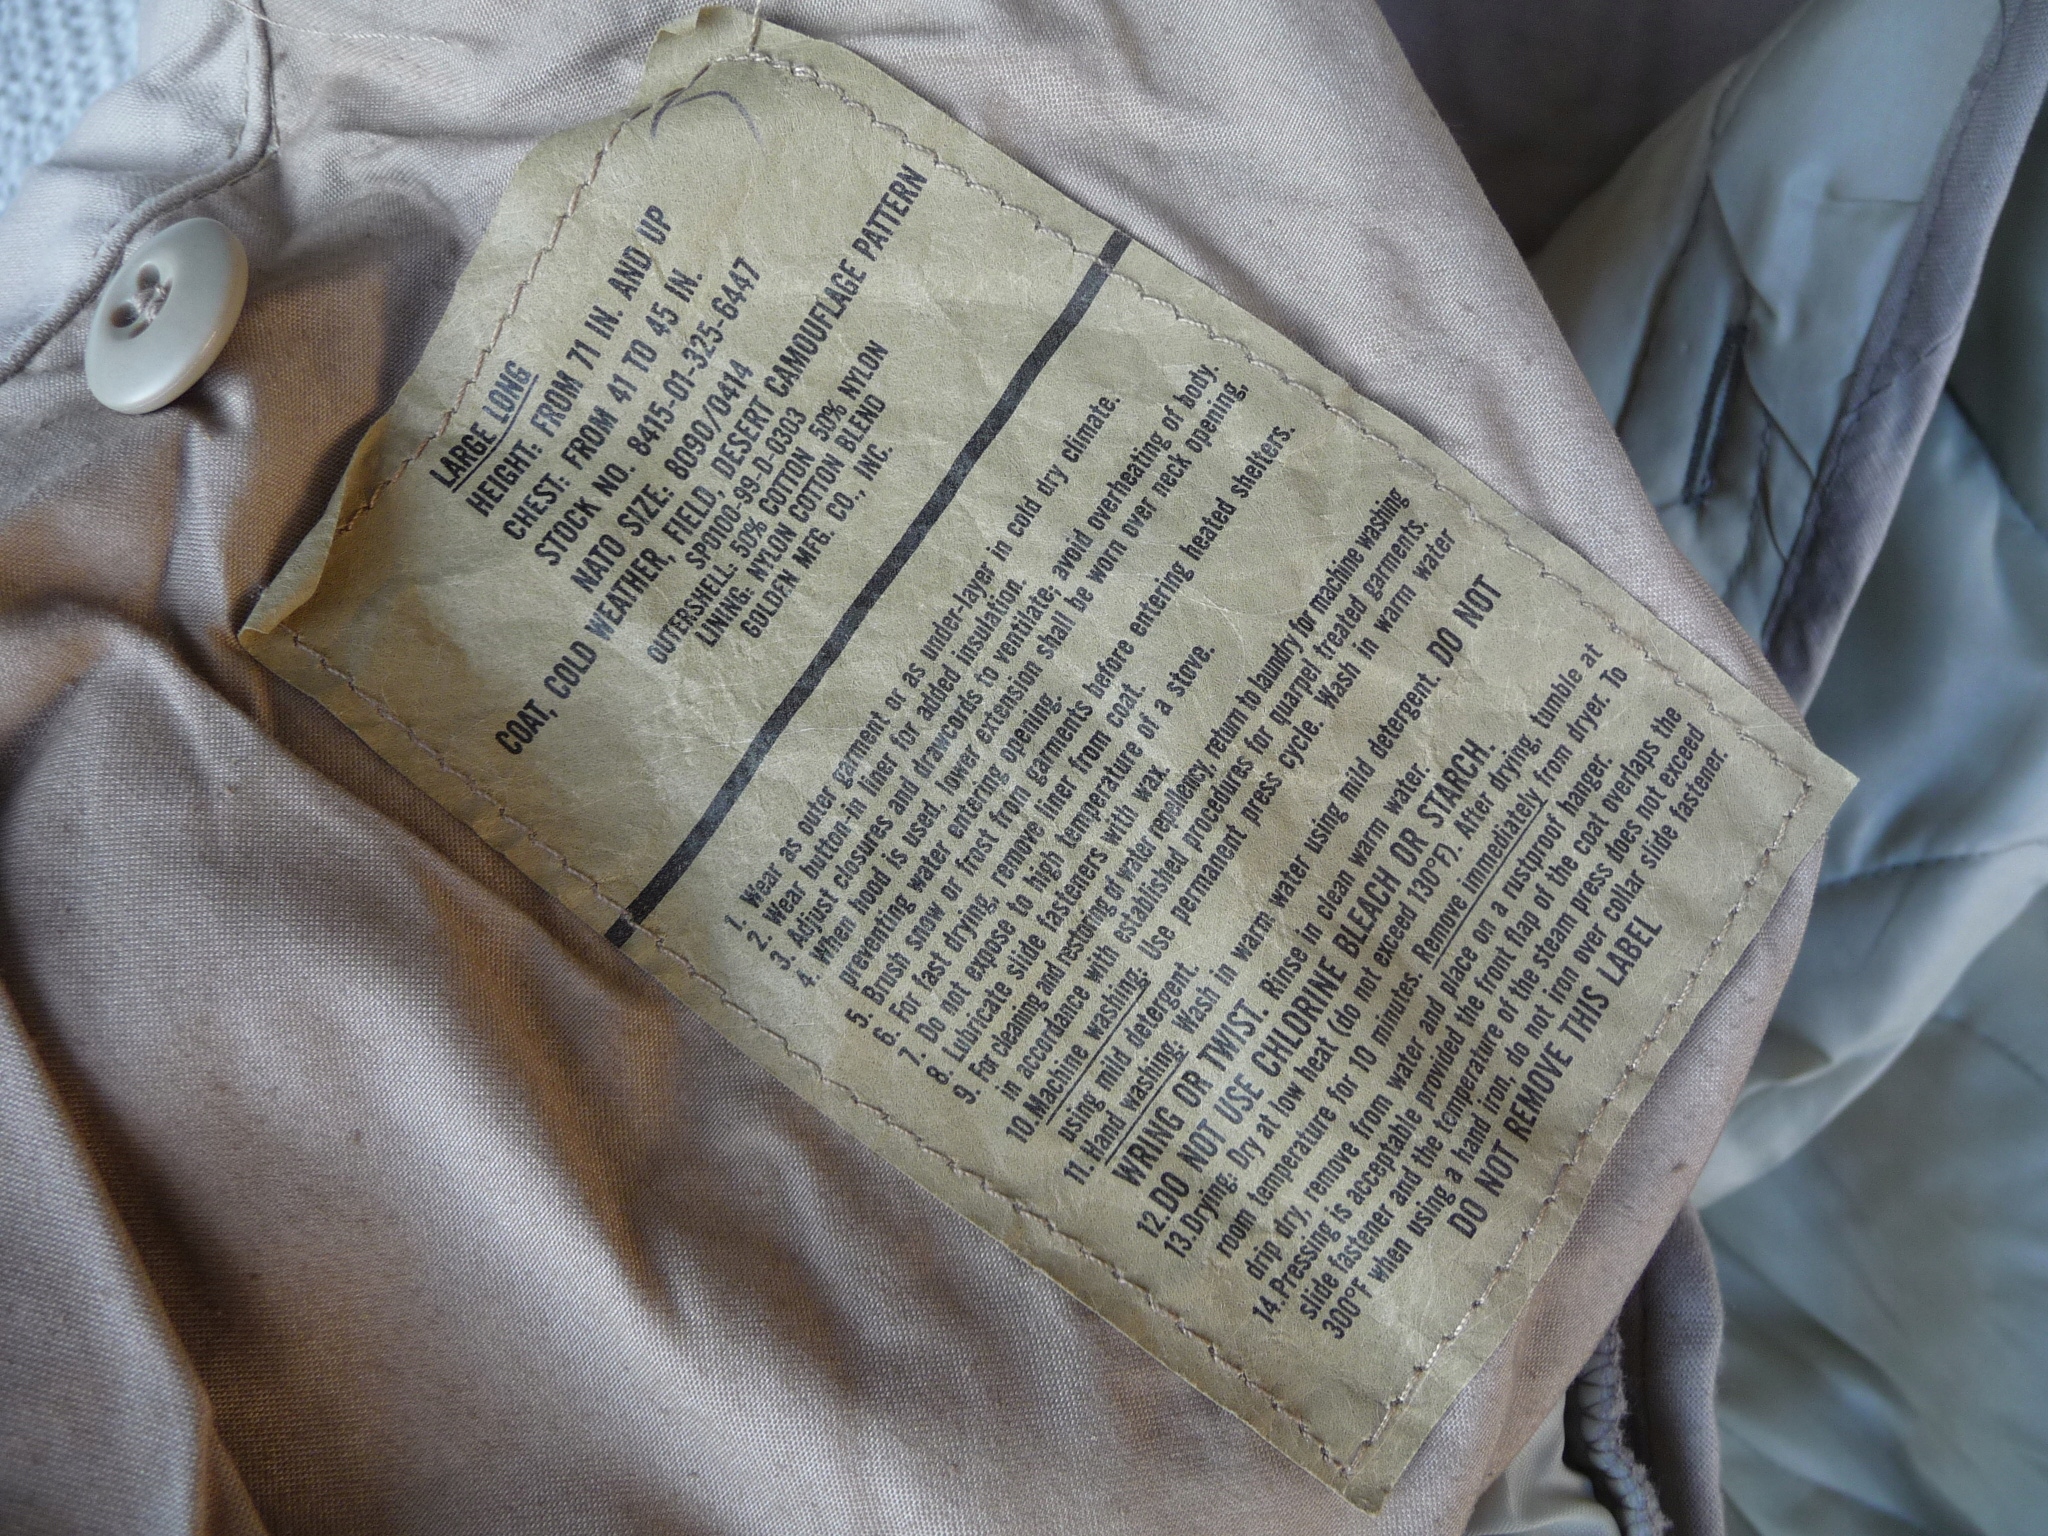 LARGE LONG
HEIGHT: FROM 71 IN. AND UP
CHEST: FROM 41 TO 45 IN.
STOCK NO. 8415-01-325-6447
NATO SIZE: 8090/0414
COAT, COLD WEATHER, FIELD, DESERT CAMOUFLAGE PATTERN
SPO100-99-D-0303
OUTERSHELL: 50% COTTON 50% NYLON
LINING: NYLON COTTON BLEND
GOLDEN MFG. CO., INC.
1. Wear as outer garment or as under-layer in cold dry climate.
2. Wear button-in liner for added insulation.
3. Adjust closures and drawcords to ventilate; avoid overheating of body.
4. When hood is used, lower extension shall be worn over neck opening,
preventing water entering opening.
5. Brush snow or frost from garments before entering heated shelters.
6. For fast drying, remove liner from coat.
7. Do not expose to high temperature of a stove.
8. Lubricate slide fasteners with wax.
9. For cleaning and restoring of water repellency, return to laundry for machine washing
in accordance with established procedures for quarpel treated garments.
10. Machine washing: Use permanent press cycle. Wash in warm water
using mild detergent.
11. Hand washing: Wash in warm water using mild detergent. DO NOT
WRING OR TWIST. Rinse in clean warm water.
12. DO NOT USE CHLORINE BLEACH OR STARCH.
13. Drying: Dry at low heat (do not exceed 130°F). After drying, tumble at
room temperature for 10 minutes. Remove immediately from dryer. To
drip dry, remove from water and place on a rustproof hanger.
14. Pressing is acceptable provided the front flap of the coat overlaps the
slide fastener and the temperature of the steam press does not exceed
300°F when using a hand iron, do not iron over collar slide fastener.
DO NOT REMOVE THIS LABEL